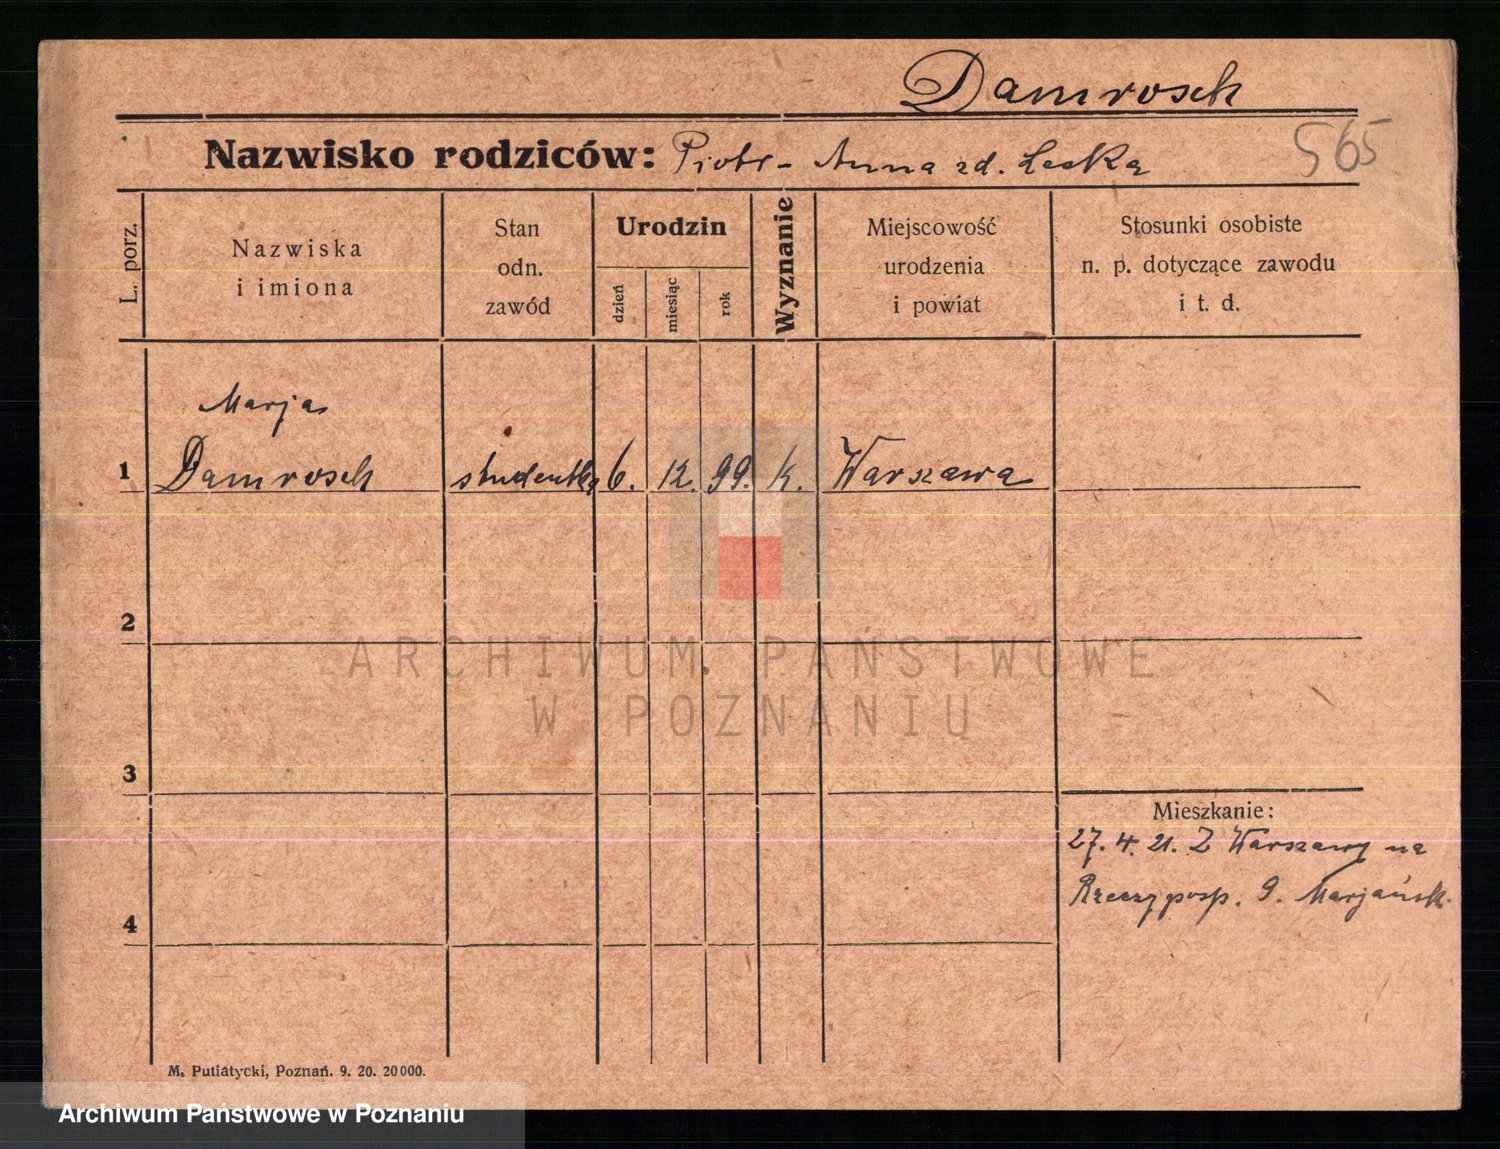 Damrosch
Nazwisko rodziców: Piotr - Anna zd. Leska
565
L. porz.
Nazwiska
i imiona
Stan
odn.
zawód
Urodzin
dzień
miesiąc
rok
Wyznanie
Miejscowość
urodzenia
i powiat
Stosunki osobiste
n. p. dotyczące zawodu
i t. d.
Marja
1 Damrosch studentka 6. 12. 99. k. Warszawa
2
ARCHIWUM PAŃSTWOWE
W POZNANIU
3
Mieszkanie:
27. 4. 21. Z Warszawy na
Rzeczyposp. 9. Marjańsk.
4
M. Putiatycki, Poznań. 9. 20. 20000.
Archiwum Państwowe w Poznaniu